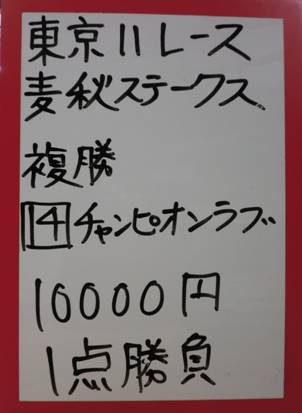 東京11レース
麦秋ステークス
複勝
14チャンピオンラブ
10000円
1点勝負